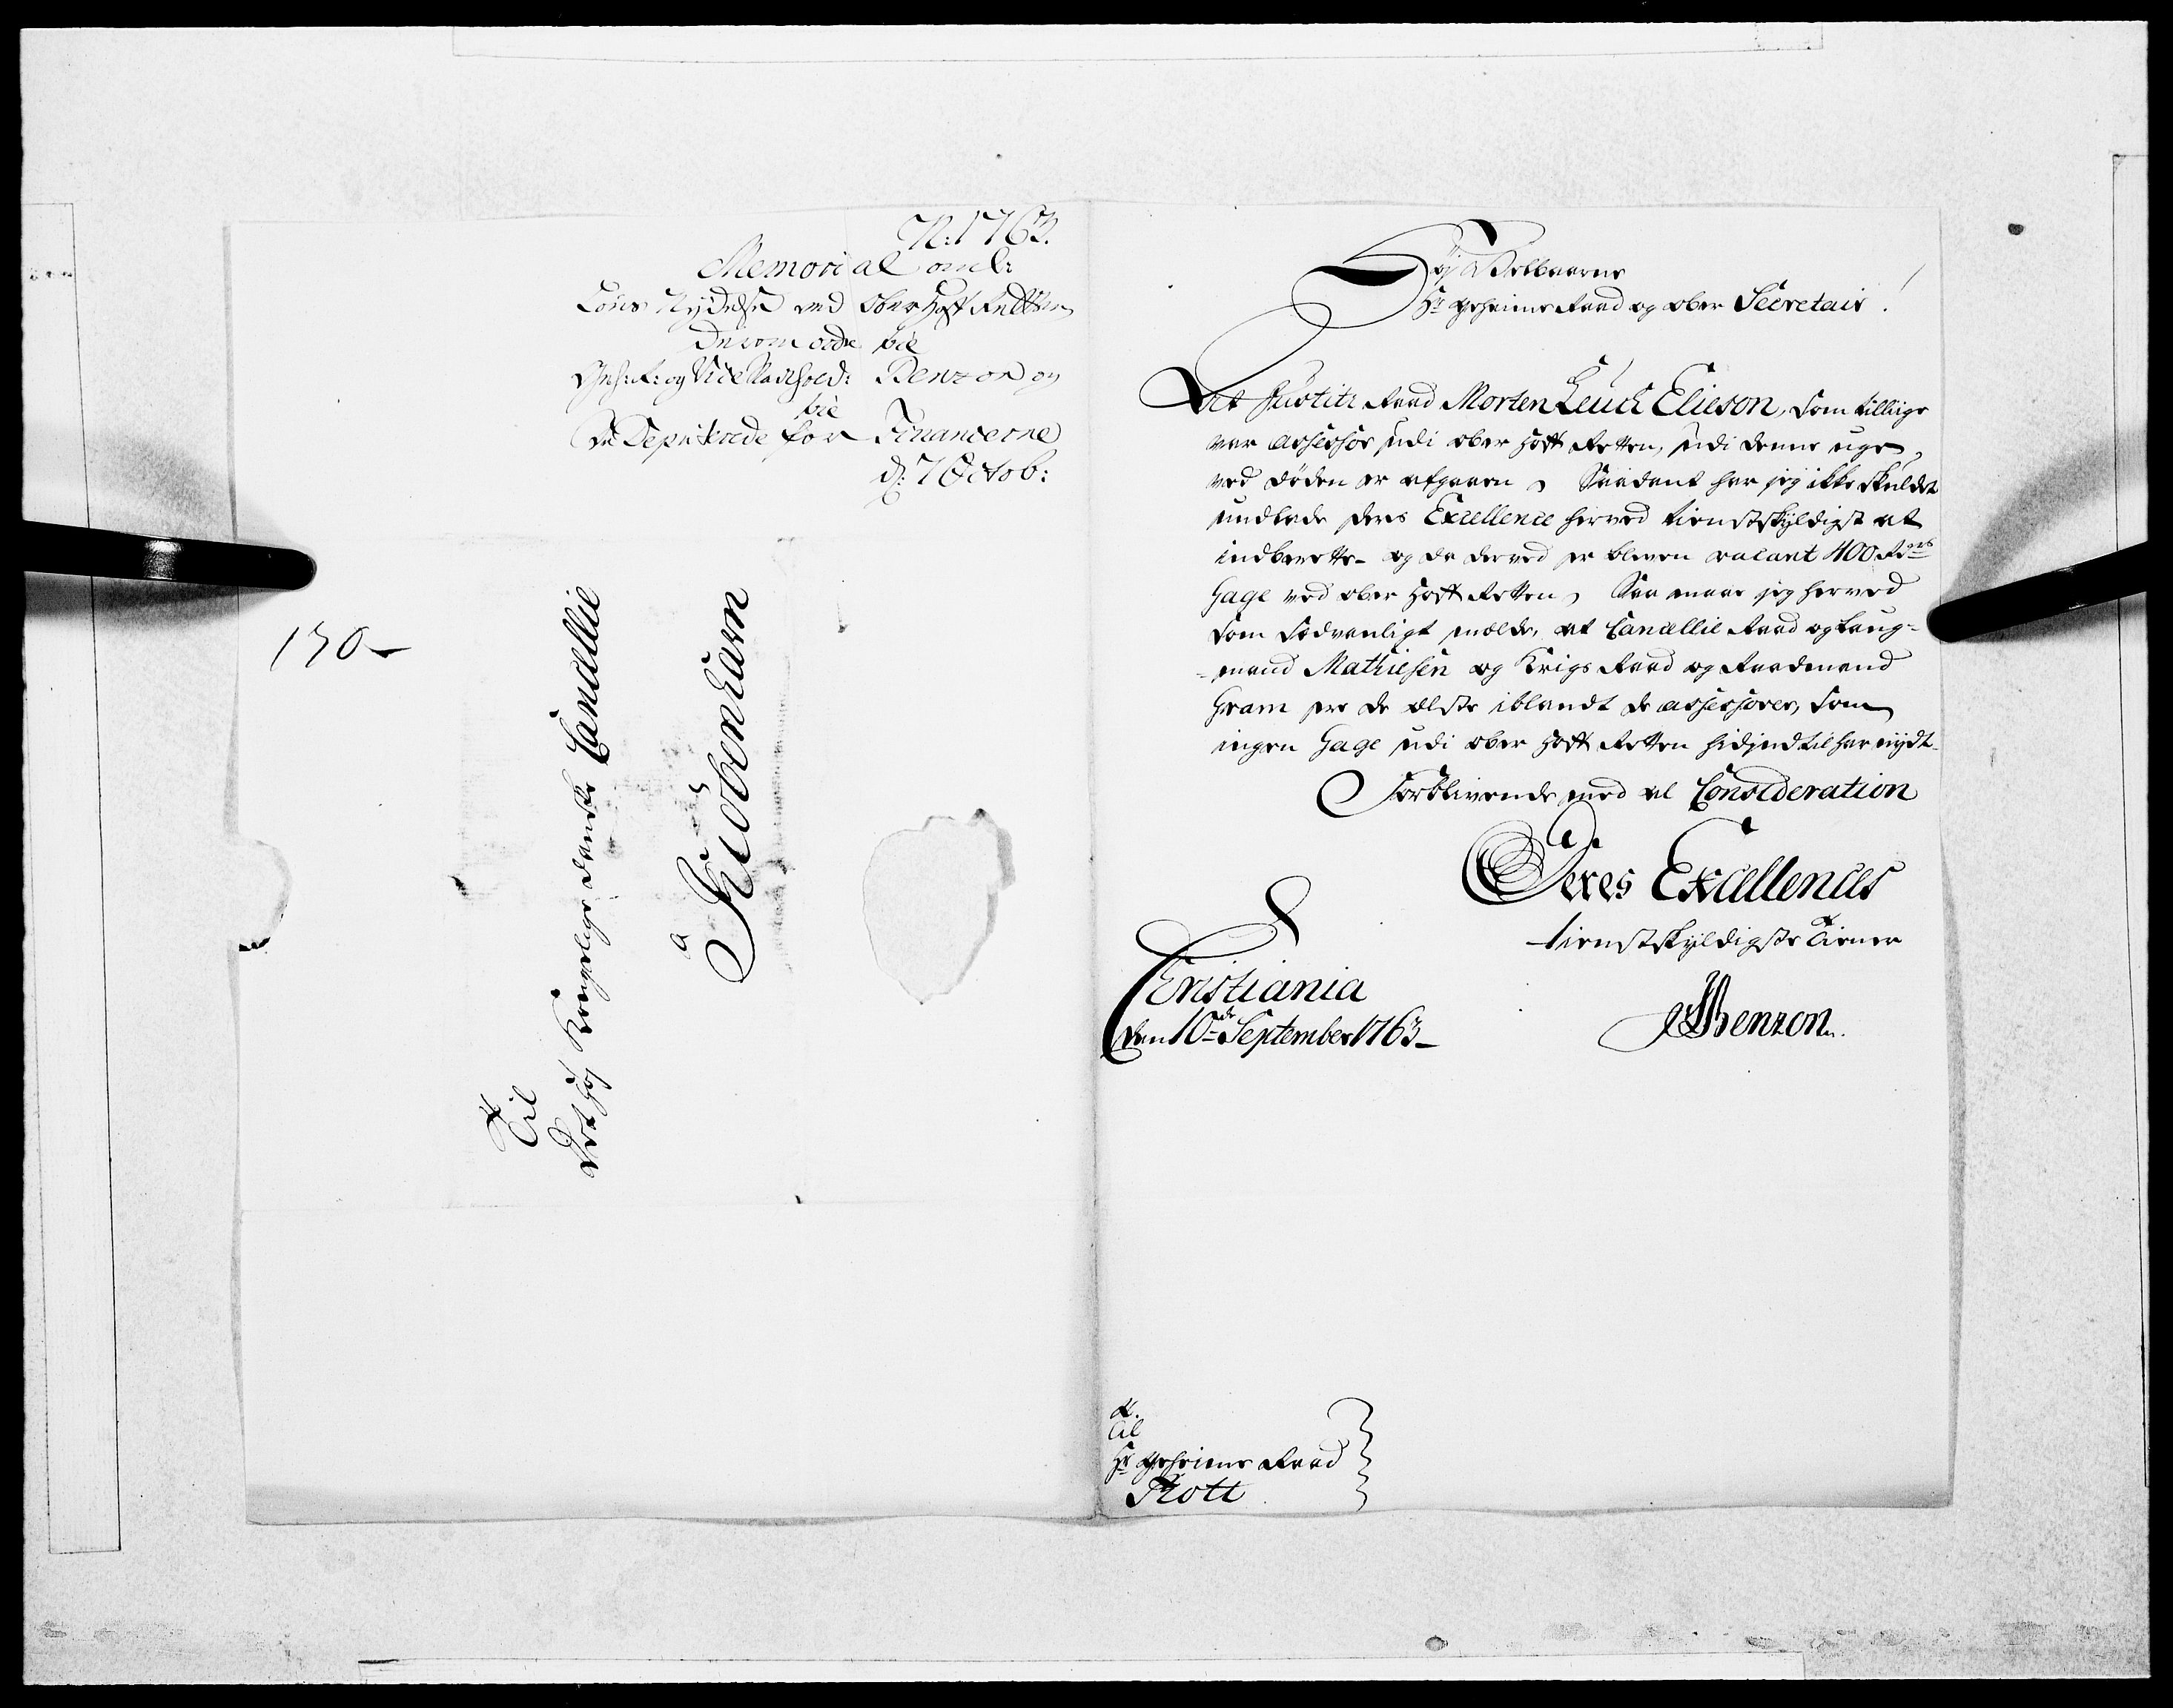 N: 1763.
Memorial anl:
Løns Nydelse ved Ober Hoff Retten
derom ordre til
Geh: R: og Vice Statthold: Benzon og
til
De Deputerede for Financerne
d: 7 Octob:
170
Til
Det Høj Kongelige Danske Cancellie
a
Kiobenhavn
Høj Velbaarne
Hr Geheime Raad og Ober Secretair!
At Justitz Raad Morten Leuch Elieson, som tillige
var Assessor udi Ober Hoff Retten, udi denne uge,
ved døden er afgaaen, Saadant har jeg ikke skuldet
undlade Deres Excellence herved tienstskyldigst at
indberette og da derved er bleven vacant 400 Rdrs
Gage ved Ober Hoff Retten, Saa maae jeg herved
som sædvanligt melde, at Cancellie Raad og Laug-
-mand Mathiesen og Krigs Raad og Raadmand
Gram ere de ælste iblandt de Assessorer, som
ingen Gage udi Ober Hoff Retten hidindtil har nydt.
Forblivende med al Consideration
Deres Excellences
tienstskyldigste Tiener
Benzon.
Christiania
den 10de September 1763
Til
Hr Geheime Raad
Thott